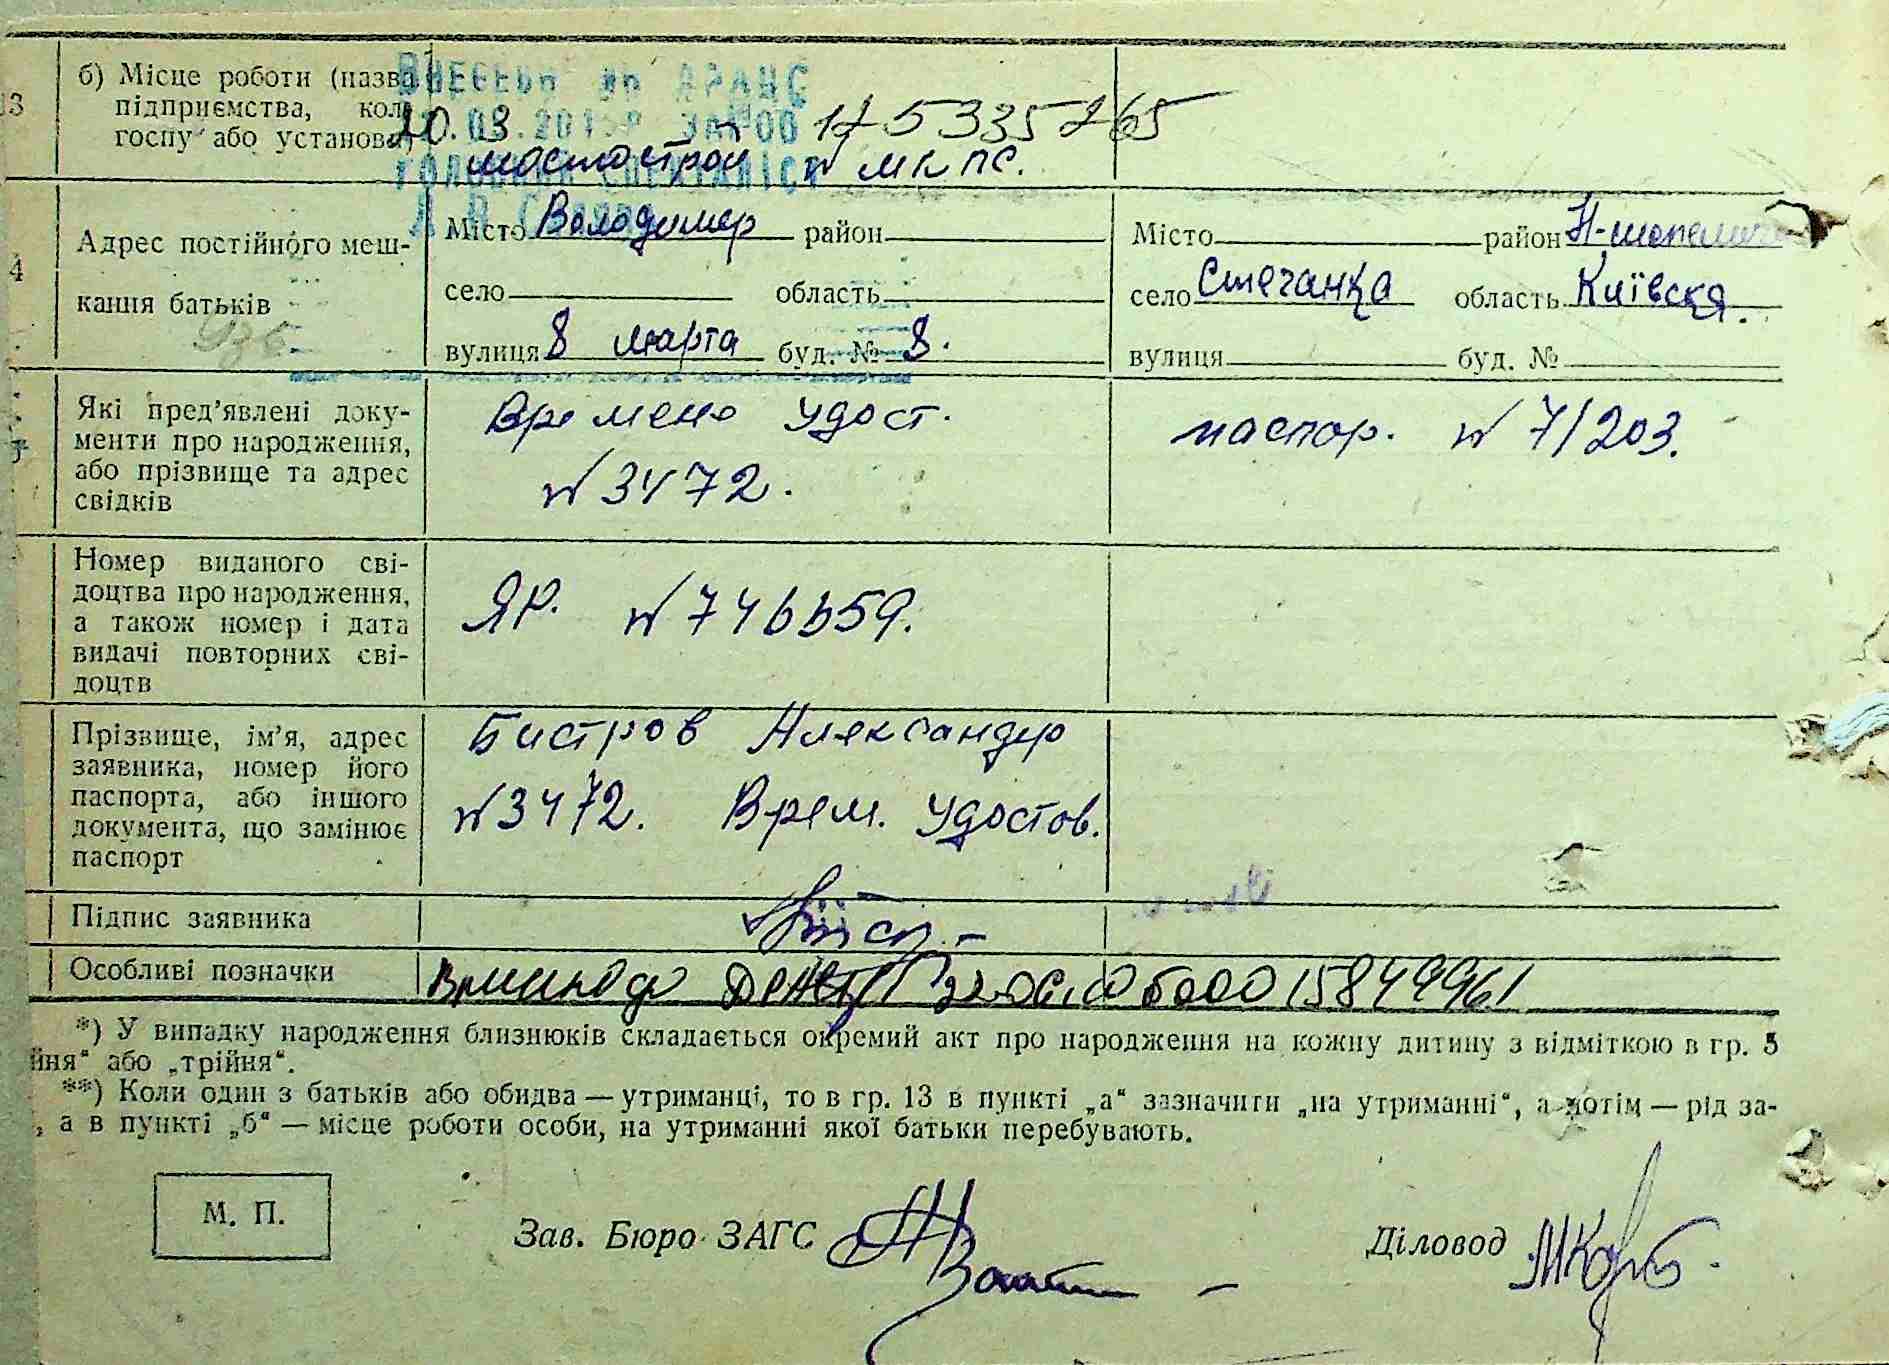 13 б) Місце роботи (назва
підприємства, кол-
госпу або установи)
ВНЕСЕНО до ДРАЦС
20.03.201 за №00 175335265
мостострой № МК ПС.
4 Адрес постійного меш-
кання батьків
Місто Володимер район
село область
вулиця 8 марта буд. № 8.
Місто район
село Стечанка область Київска.
вулиця буд. №
Які пред’явлені доку-
менти про народження,
або прізвище та адрес
свідків
Времено удост.
№ 3472.
паспор. № 7/203.
Номер виданого сві-
доцтва про народження,
а також номер і дата
видачі повторних сві-
доцтв
ЯР. № 746659.
Прізвище, ім’я, адрес
заявника, номер його
паспорта, або іншого
документа, що замінює
паспорт
Бистров Александр
№ 3472. Врем. удостов.
Підпис заявника
Особливі позначки
00015849961
*) У випадку народження близнюків складається окремий акт про народження на кожну дитину з відміткою в гр. 5
йня“ або „трійня“.
**) Коли один з батьків або обидва — утриманці, то в гр. 13 в пункті „а“ зазначити „на утриманні“, а потім — рід за-
, а в пункті „б“ — місце роботи особи, на утриманні якої батьки перебувають.
М. П.
Зав. Бюро ЗАГС
Діловод